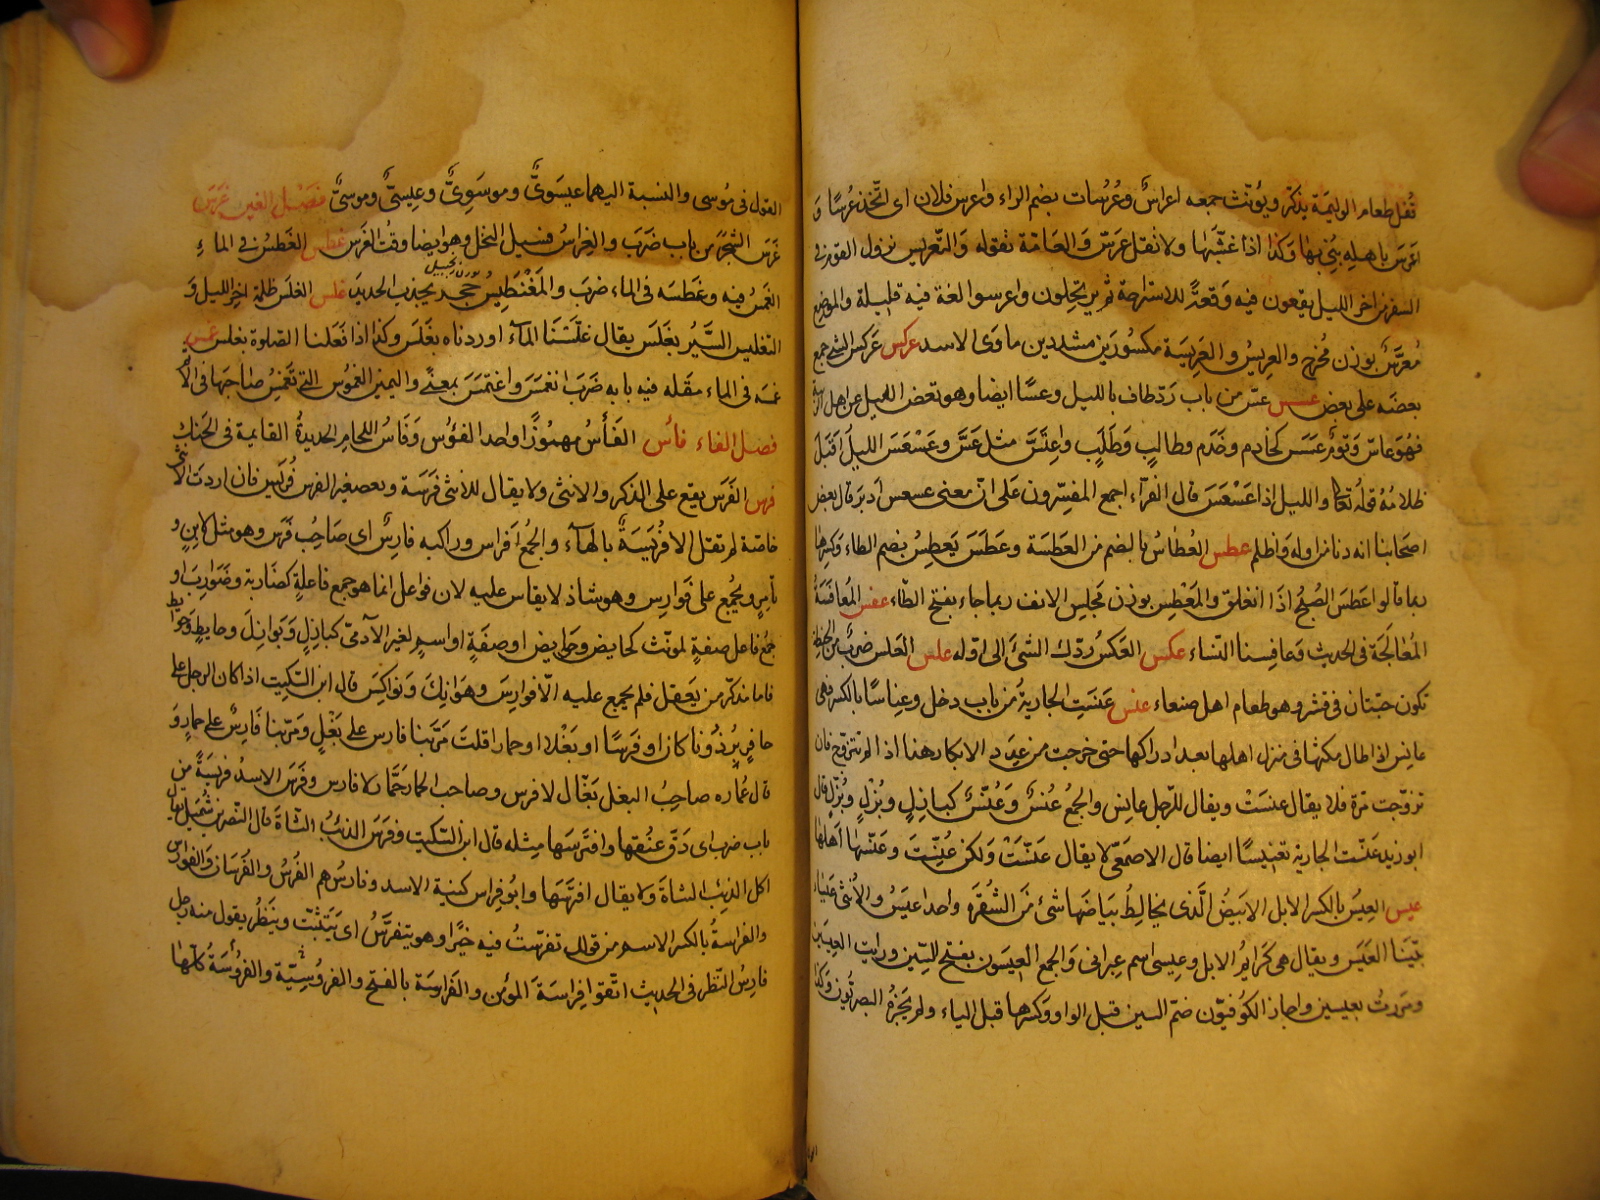 ثقل طعام الوليمة يذكر ويؤنث جمعه اعراسٌ وعُرُسات بضم الراء واعرس فلان اى اتخذ عُرسًا وَ
اعرسَ باهله بنى بها وكذا اذا غشيَها ولا تقل عَرَسَّ وَالعامّة تقوله وَالتَّعريس نزول القوم فى
السفر من اخر الليل يقعون فيه وَقعةً للاستراحة ثم يرتحلون واعرسوا لغة فيه قليلة والموضع
مُعرَّسٌ بوزن مُخرج والعِرِّيسُ والعِرِّيسَة مكسُورَين مشددين ماوى الاسد عركس عَركسَ الشئ جمع
بعضَه على بعض عسس عسّ من باب ردّ طاف بالليل وعسًّا ايضا وهو نفض الليل عن اهل الريبة
فهُوَ عاسّ وَقومٌ عَسَسٌ كخادم وخَدَم وطالبٍ وَطَلَبٍ واعتسَّ مثل عَسَّ وعَسْعَسَ الليلُ اقبَلَ
ظلامُهُ قوله تعالى والليل اذا عَسْعَسَ قال الفرآء اجمع المفسّرون عَلى انّ معنى عسعس ادبرَ قال بعض
اصحَابنا انه دنا من اوله وَاظلم عطس العُطاسُ بالضم من العَطسَة وعَطَسَ يَعطِسُ بضم الطاء وَكسرها
ربما قالوا عَطَسَ الصُبحُ اذَا انفلق والمَعْطِس بوزن مَجلِس الانف ربما جاء بفتح الطاء عفس المُعافَسَةُ
المُعالَجَة فى الحديث وَعافسنا النساء عكس العَكسُ ردّك الشئَ الى اوّله علس العَلس ضربٌ من الحنطة
تكون حبّتان فى قشر وهو طعام اهل صنعاء عنس عَنسَتِ الجارية من باب دخل وعِناسًا بالكسر فهى
عانس اذا طال مكثها فى منزل اهلها بعد ادراكها حتى خرجت من عِدَد الابكار هذا اذا لم تتزوج فان
تزوّجت مرّة فلا يقال عنَسَتْ ويقال للرّجل عانِس والجمعُ عُنسٌ وَعُنّسٌ كبازِلٍ وبُزْلٍ وبُزَّلٍ قال
ابو زيد عنّست الجارية تعنِيسًا ايضا قال الاصمَعىّ لا يقال عَنسَتْ وَلكن عُنِّسَت وعَنّسَها اَهلها
عيس العِيسُ بالكسر الابل الابيَضُ الَّذى يخالِطُ بيَاضَها شئ منَ الشُقرَة واحدها عيَسُ وَالاُنثى عَيساء
بيّنا العَيَسِ ويقال هى كرَايم الابل وعِيسى اسم عِبرانى وَالجمع العِيسَون بفتح السِّين ورايت العِيسَين
ومَررتُ بعيسَين واجاز الكوُفيّون ضمّ السين قبل الواو وَكسرها قبل الياء ولم يُجِزهُ البصرِيُّون وَكذا
القول فى مُوسى والنسبة اليهما عيسَوىٌّ وموسَوِىٌّ وعِيسىٌّ وموسىٌّ فَصْل الغين غرَسَ
غَرَسَ الشجَرَ من باب ضَرَبَ والغِراسُ فسيل النخل وهو ايضا وقتُ الغَرس غطس الغَطسُ فى الماءِ
الغمْسُ فيه وغطسَه فى الماء ضربَ والمَغْنَطِيسُ بوزن زنجبيل حَجر يجذب الحديد غلس الغلَس ظلمة اخر الليل وَ
التغليس السَّيرُ بغَلَس يقال غلّسْنَا المآءَ اوردناه بغَلَس وكذا اذا فعَلنا الصَّلوة بغلس غمس
غمَسَه فى الماء مقَله فيه بابه ضرَبَ انغمَسَ واغتمَسَ بمعنًى واليمين الغمُوس التى تَغمِسُ صاحبَها فى الاثم
فصل الفاء فأس الفَأسُ مهمُوزًا واحد الفؤس وَفَاسُ اللجامِ الحديدةُ القايمة فى الحنك
فرس الفَرَس يقع على الذكر والانثى ولا يقال للانثى فرَسَة وتصغير الفرس فُرَيس فان اردتَ الانثى
خاصّة لم تقل الا فُرَيسَةٌ بالهآء والجمعُ افراس وراكبه فارِسٌ اى صَاحِبُ فَرَس وهو مثل لابنٍ و
تامرٍ ويُجمَع على فَوارِس وهو شاذ لا يقاس عليه لان فواعل انما هو جمع فاعلةٍ كضاربة وضَوارِبَ او
جمعُ فاعل صفةٍ لمؤنث كحايض وحوايض او صفَةٍ او اسمٍ لغير الآدمىّ كبازِلٍ وَبَوازلَ وحايطٍ وَحوايط
فاما مذكّر من يَعقل فلم يجمع عليه الّا فوارِسَ وهَوَالكَ وَنواكِسَ قال ابن السّكِيت اذا كان الرجل على
حافرٍ بِرذُونا كان او فرَسًا او بَغْلا او حمارا قلتَ مَرّ بنا فارس على بَغْلٍ وَمَرّ بنا فَارِسٌ على حمارٍ وَ
قال عُمارة صاحِبُ البغل بَغّال لا فرس وصاحب الحمار حَمَّار لا فارس وفَرَس الاسدُ فريسَةً من
باب ضرب اى دَقَّ عنُقها وافتَرسَها مِثله قال ابن السّكِيت وفَرَس الذئبُ الشاةَ قال النضر بن شميل يقال
اكل الذئب الشاةَ ولا يقال افترسَها وابُو فِراس كنية الاسد وفارسُ هم الفُرْسُ والفُرسَان وَالفوارس
والفِراسةُ بالكسر الاسم من قولك تفرّستُ فيه خيرًا وهو يتفرّسُ اى يتثبّتُ وينظُر يقول منه رجل
فارِسُ النّظر فى الحديث اتّقوا فِراسَةَ المؤمن والفَراسَة بالفتح والفروُسِيّة والفُروُسَةُ كلّها